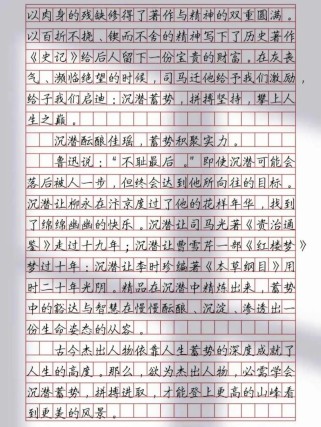 以肉身的残缺修得了著作与精神的双重圆满。
以百折不挠、锲而不舍的精神写下了历史著作
《史记》给后人留下一份宝贵的财富。在灰丧
气、濒临绝望的时候，司马迁他给予我们激励，
给予我们启迪；沉潜蓄势，拼搏坚持，攀上人
生之巅。
沉潜酝酿佳瑶，蓄势积聚实力。
鲁迅说：“不耻最后。”即使沉潜可能会
落后被人一步，但终会达到他所向往的目标。
沉潜让柳永在汴京度过了他的花样年华，找到
了绵绵幽幽的快乐。沉潜让司马光著《资治通
鉴》走过十九年；沉潜让曹雪芹一部《红楼梦》
梦过十年；沉潜让李时珍编著《本草纲目》用
时二十年光阴。精品在沉潜中精炼出来，蓄势
中的豁达与智慧在慢慢酝酿、沉淀、渗透出一
份生命姿态的从容。
古今杰出人物依靠人生蓄势的深度成就了
人生的高度。那么，欲为杰出人物，必需学会
沉潜蓄势，拼搏进取，才能登上更高的山峰看
到更美的风景。